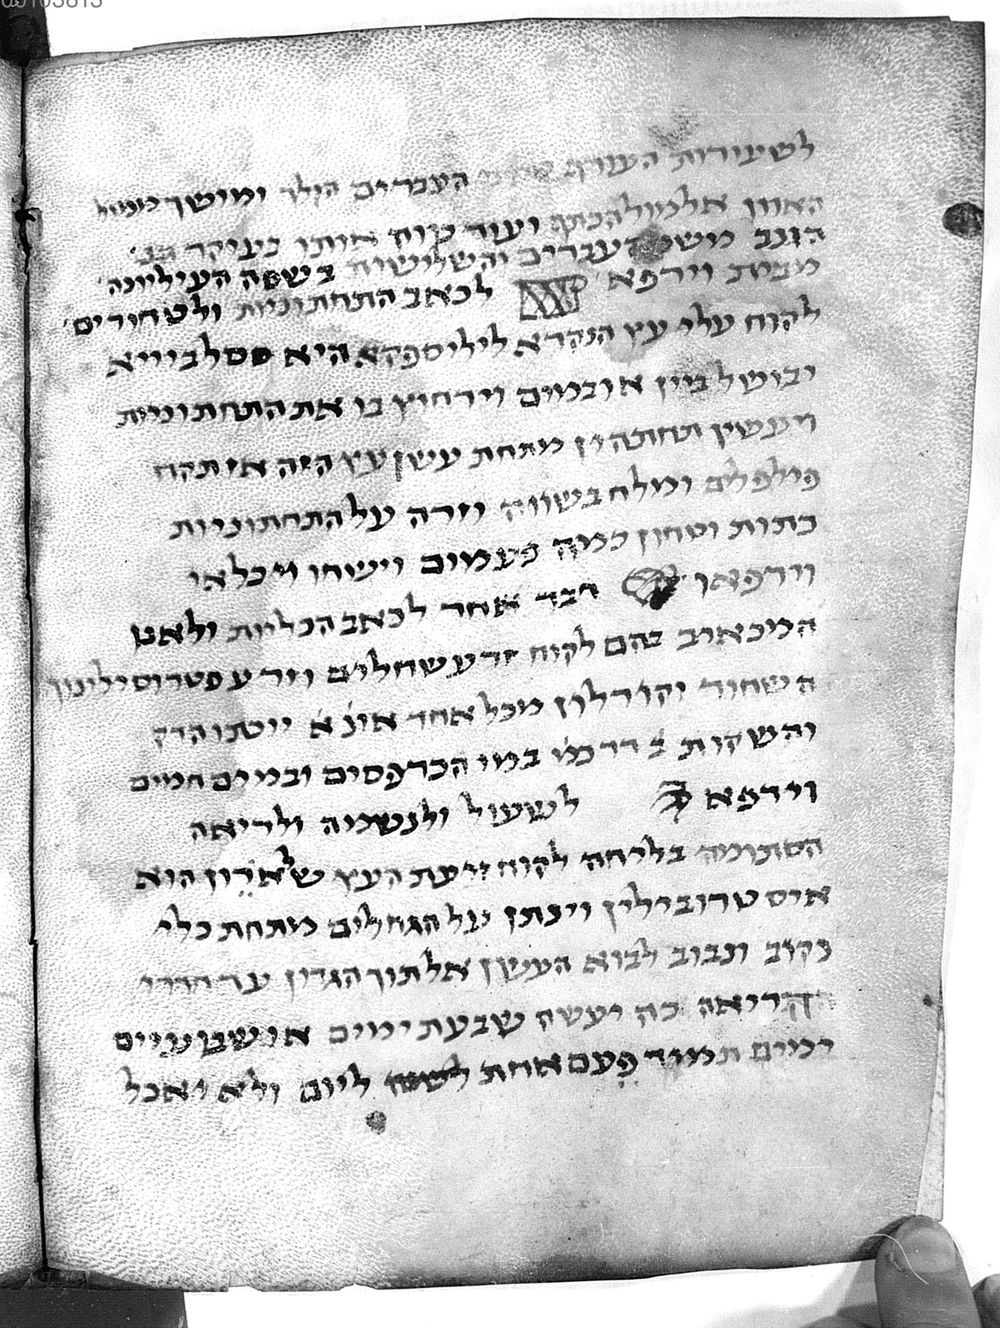 לשעירות העורף העברים הולך ומושך
האוזן אל מול הכתף ועוד כוות אותו בעיקר
הזנב מש העברים והשלישית בשפה העיליונה
מבית וירפא לכאב התחתוניות ולטחורים
לקוח עלי עץ הנקרא ליליספקא היא ססלבייא
יבושל ביין או במים וירחוץ בו את התחתוניות
ויעשין תחתה ין מתחת עשן עץ הזה אז תקח
פילפלים ומלח בשווה וזרה על התחתוניות
כתות וטחון כמה פעמים וישחו ויכלאו
וירפאו דבר אחר לכאב הכליות ולאט
המכאוב בהם לקוח זרע שחלים וזרע פטרוסילינון
השחור יקורלון מכל אחד אונ׳ א׳ יוכתו הדק
והשקות ב׳ דרכמ׳ במי הכרפסים ובמים חמים
וירפא לשעול ולנשמיה ולריאה
הסתומה בליחה לקוח זיעת העץ שלארזון הוא
איסטרובילין וינתן על הגחלים מתחת כלי
נקוב ונבוב לבוא העשן אל תוך הגרון עד חדרי
הריאה כה יעשה שבעת ימים או שבועיים
ימים תמיד פעם אחת ליום ולא יאכל